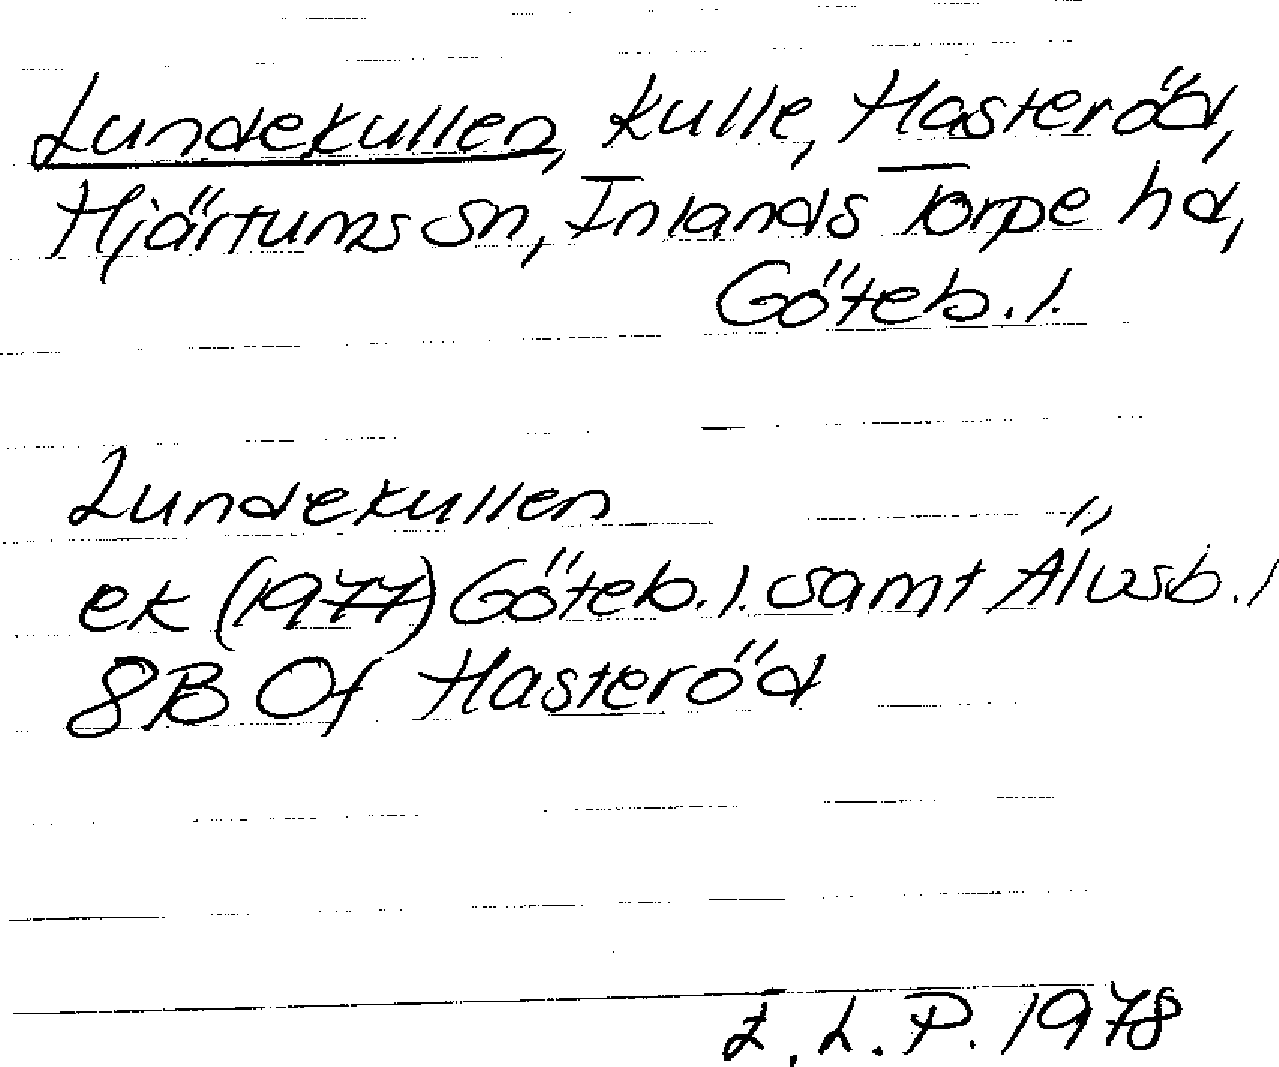 Lundekullen, kulle, Hasteröd,
Hjärtums sn, Inlands Torpe hd,
Göteb. l.
Lundekullen
ek (1977) Göteb. l. samt Älvsb. l
8B 0f Hasteröd
L. P. 1978